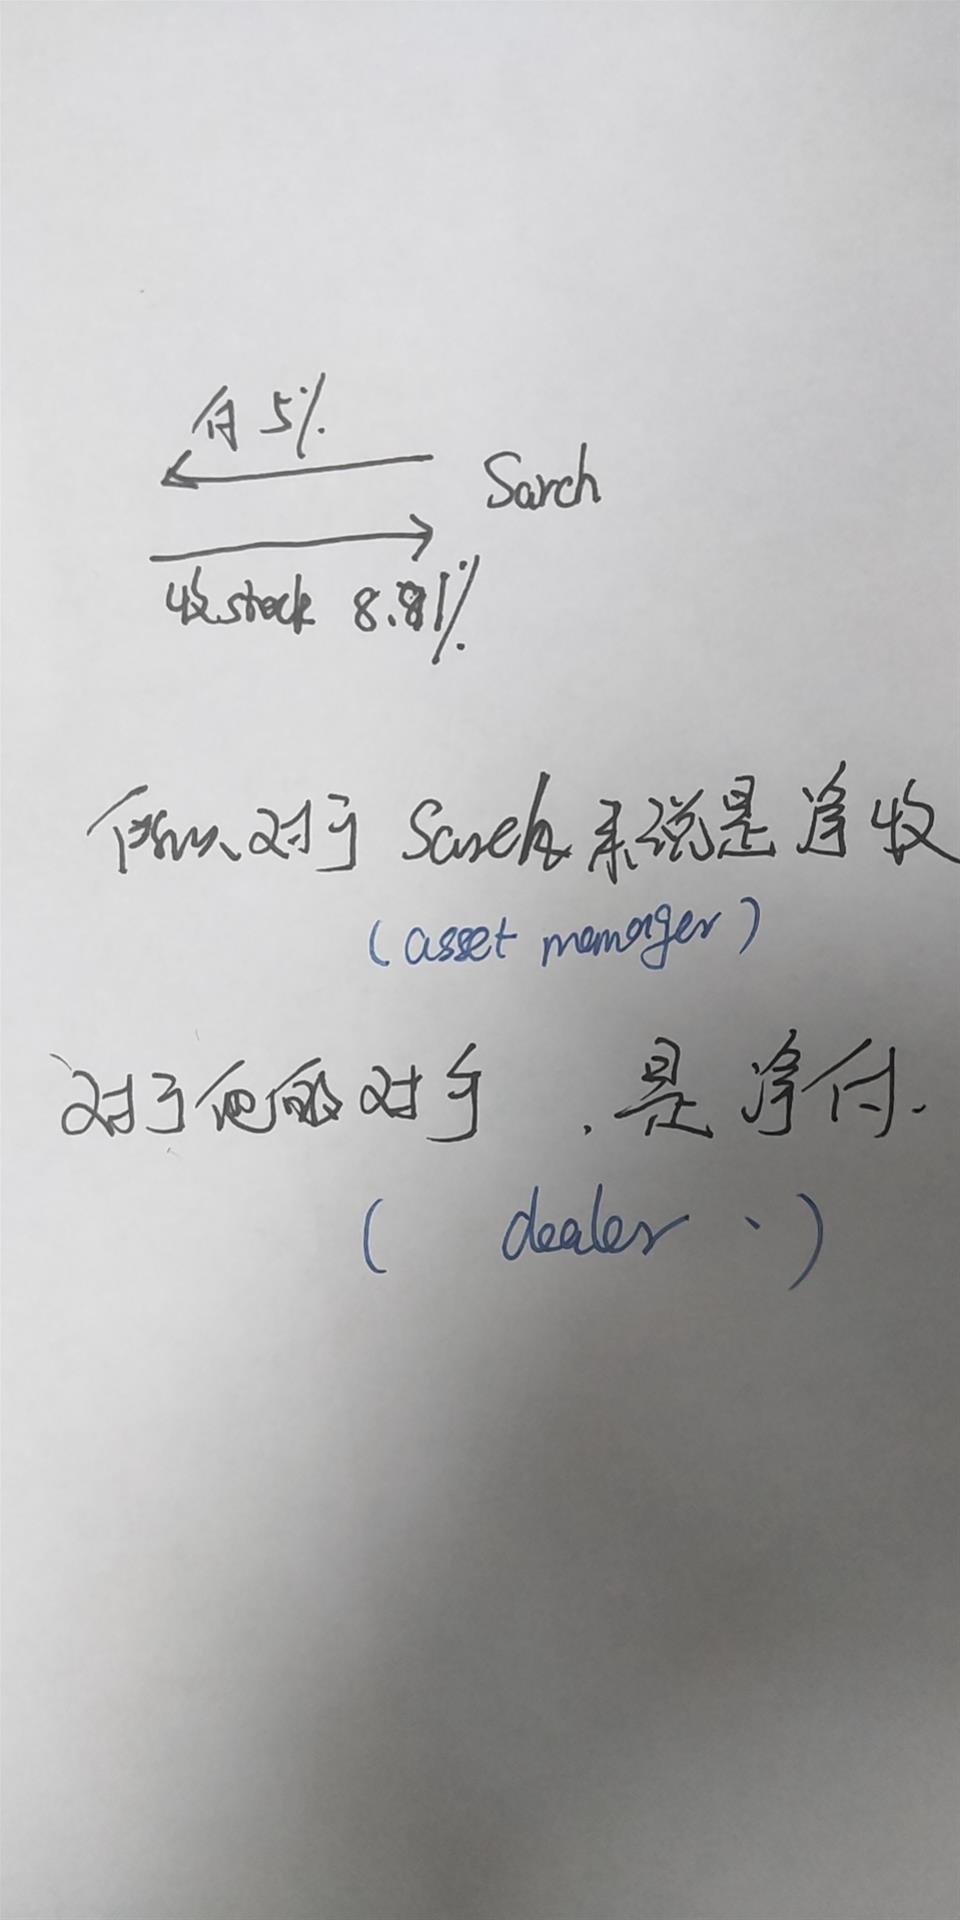 付 5%
Sarch
收 stock 8.81%
所以对于 Sarch 来说是净收
(asset manager)
对于他的对手 . 是净付.
( dealer )